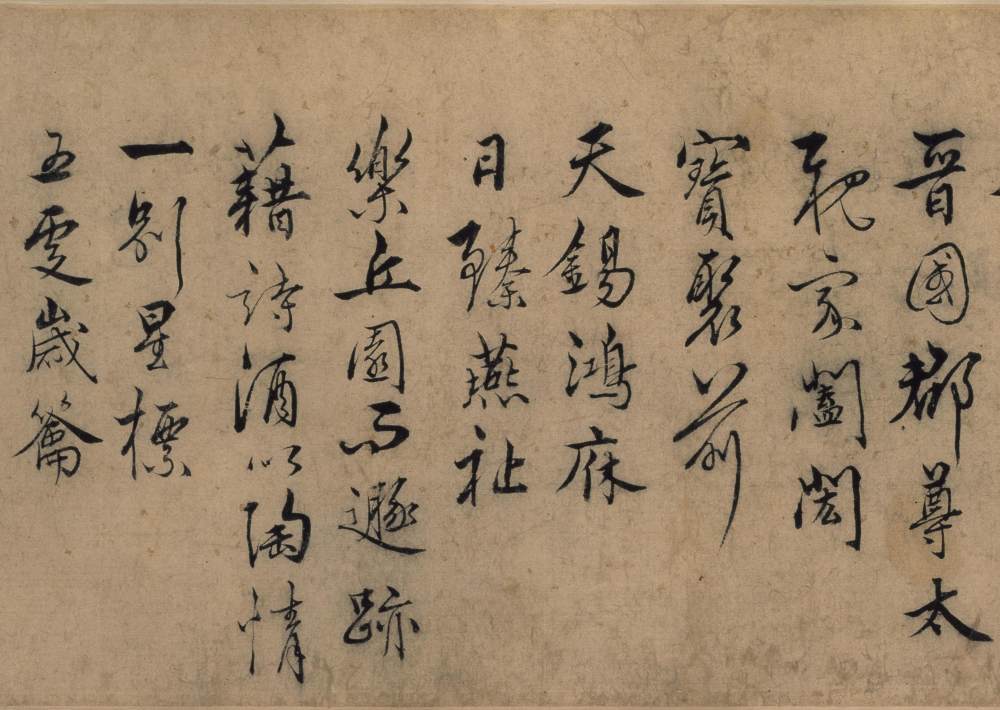 晉國郡尊太
親家闔閎
寶聚前
天錫鴻庥
日臻燕祉
樂丘園而遯跡
藉詩酒以陶情
一別星標
五更歲籥